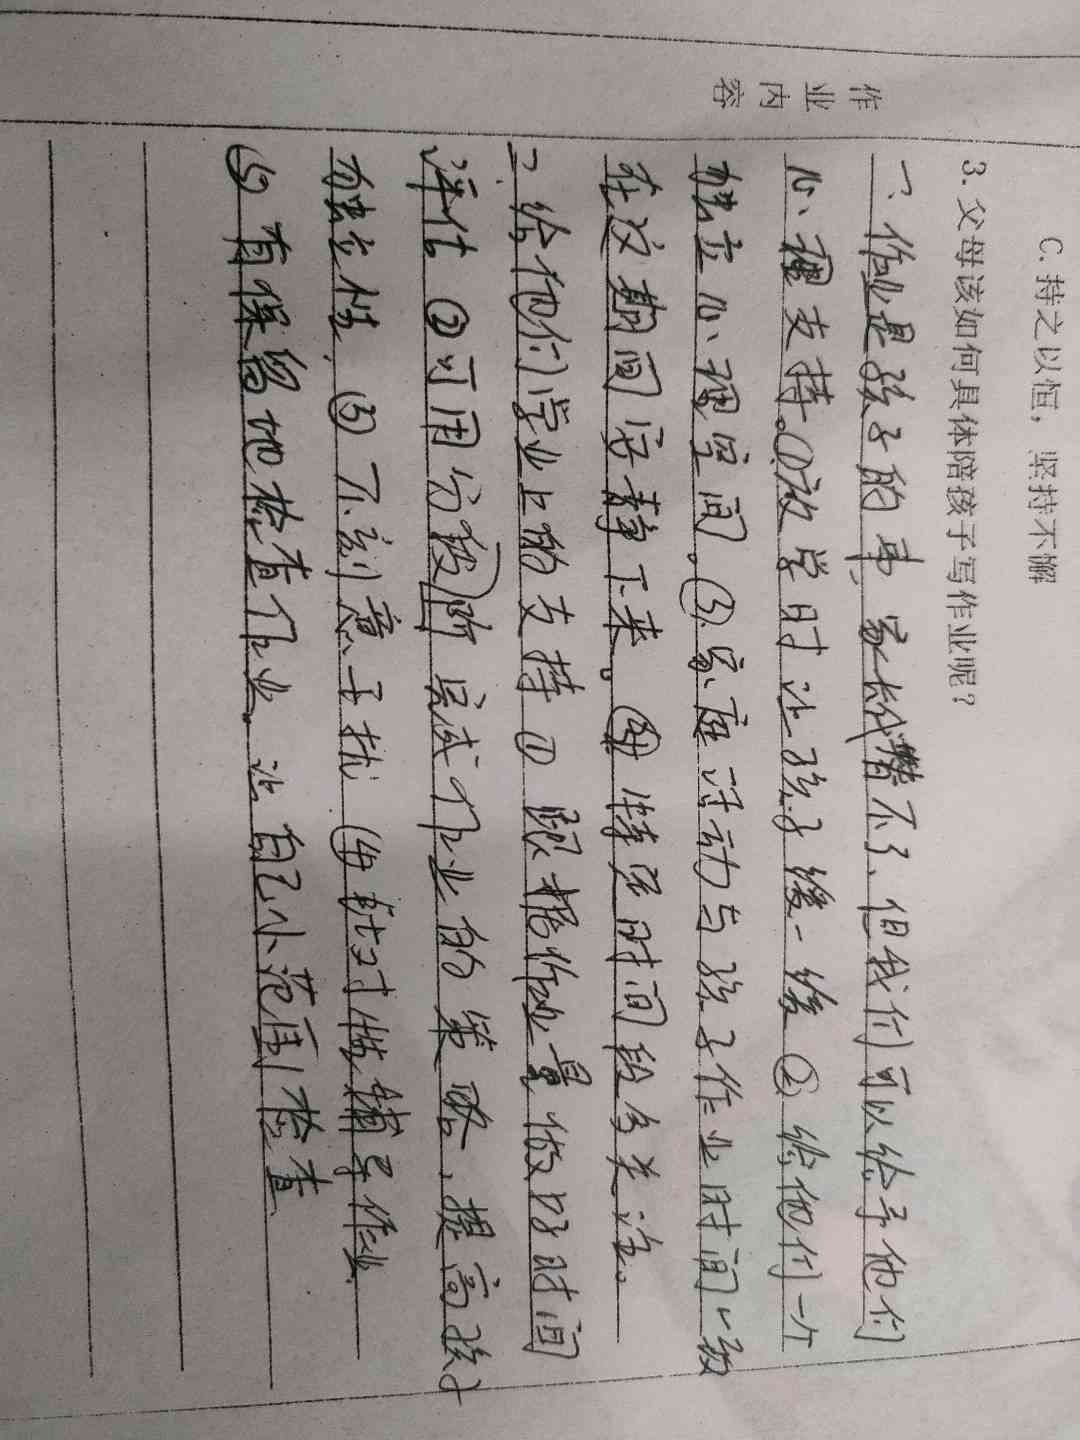 作业内容
C. 持之以恒，坚持不懈
3. 父母该如何具体陪孩子写作业呢？
一、作业是孩子的事，家长代替不了、但我们可以给予他们
心理支持。①放学时让孩子缓一缓 ②给他们一个
独立心理空间。③家庭活动与孩子作业时间一致
在这期间安静下来。④特殊时间段多关注。
二、给他们学业上的支持 ① 跟据作业量做好时间
评估 ②可用分段 完成作业的策略，提高孩子
独立性，③不刻意干扰 ④针对性辅导作业.
⑤有保留地检查作业。让自己小范围检查